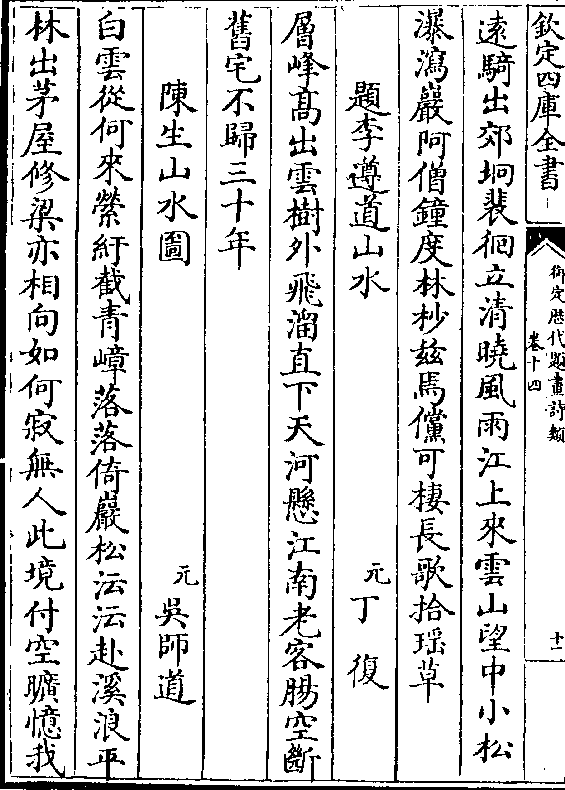 欽定四庫全書
御定歴代題畫詩類
卷十四
十一
逺騎出郊坰裴徊立清曉風雨江上來雲山望中小松
瀑瀉巖阿僧鐘度林杪兹焉儻可棲長歌拾瑶草
題李遵道山水
元丁復
層峰髙出雲樹外飛溜直下天河懸江南老客腸空斷
舊宅不歸三十年
陳生山水圖
元吳師道
白雲從何來縈紆截青嶂落落倚巖松沄沄赴溪浪平
林出茅屋修梁亦相向如何寂無人此境付空曠憶我